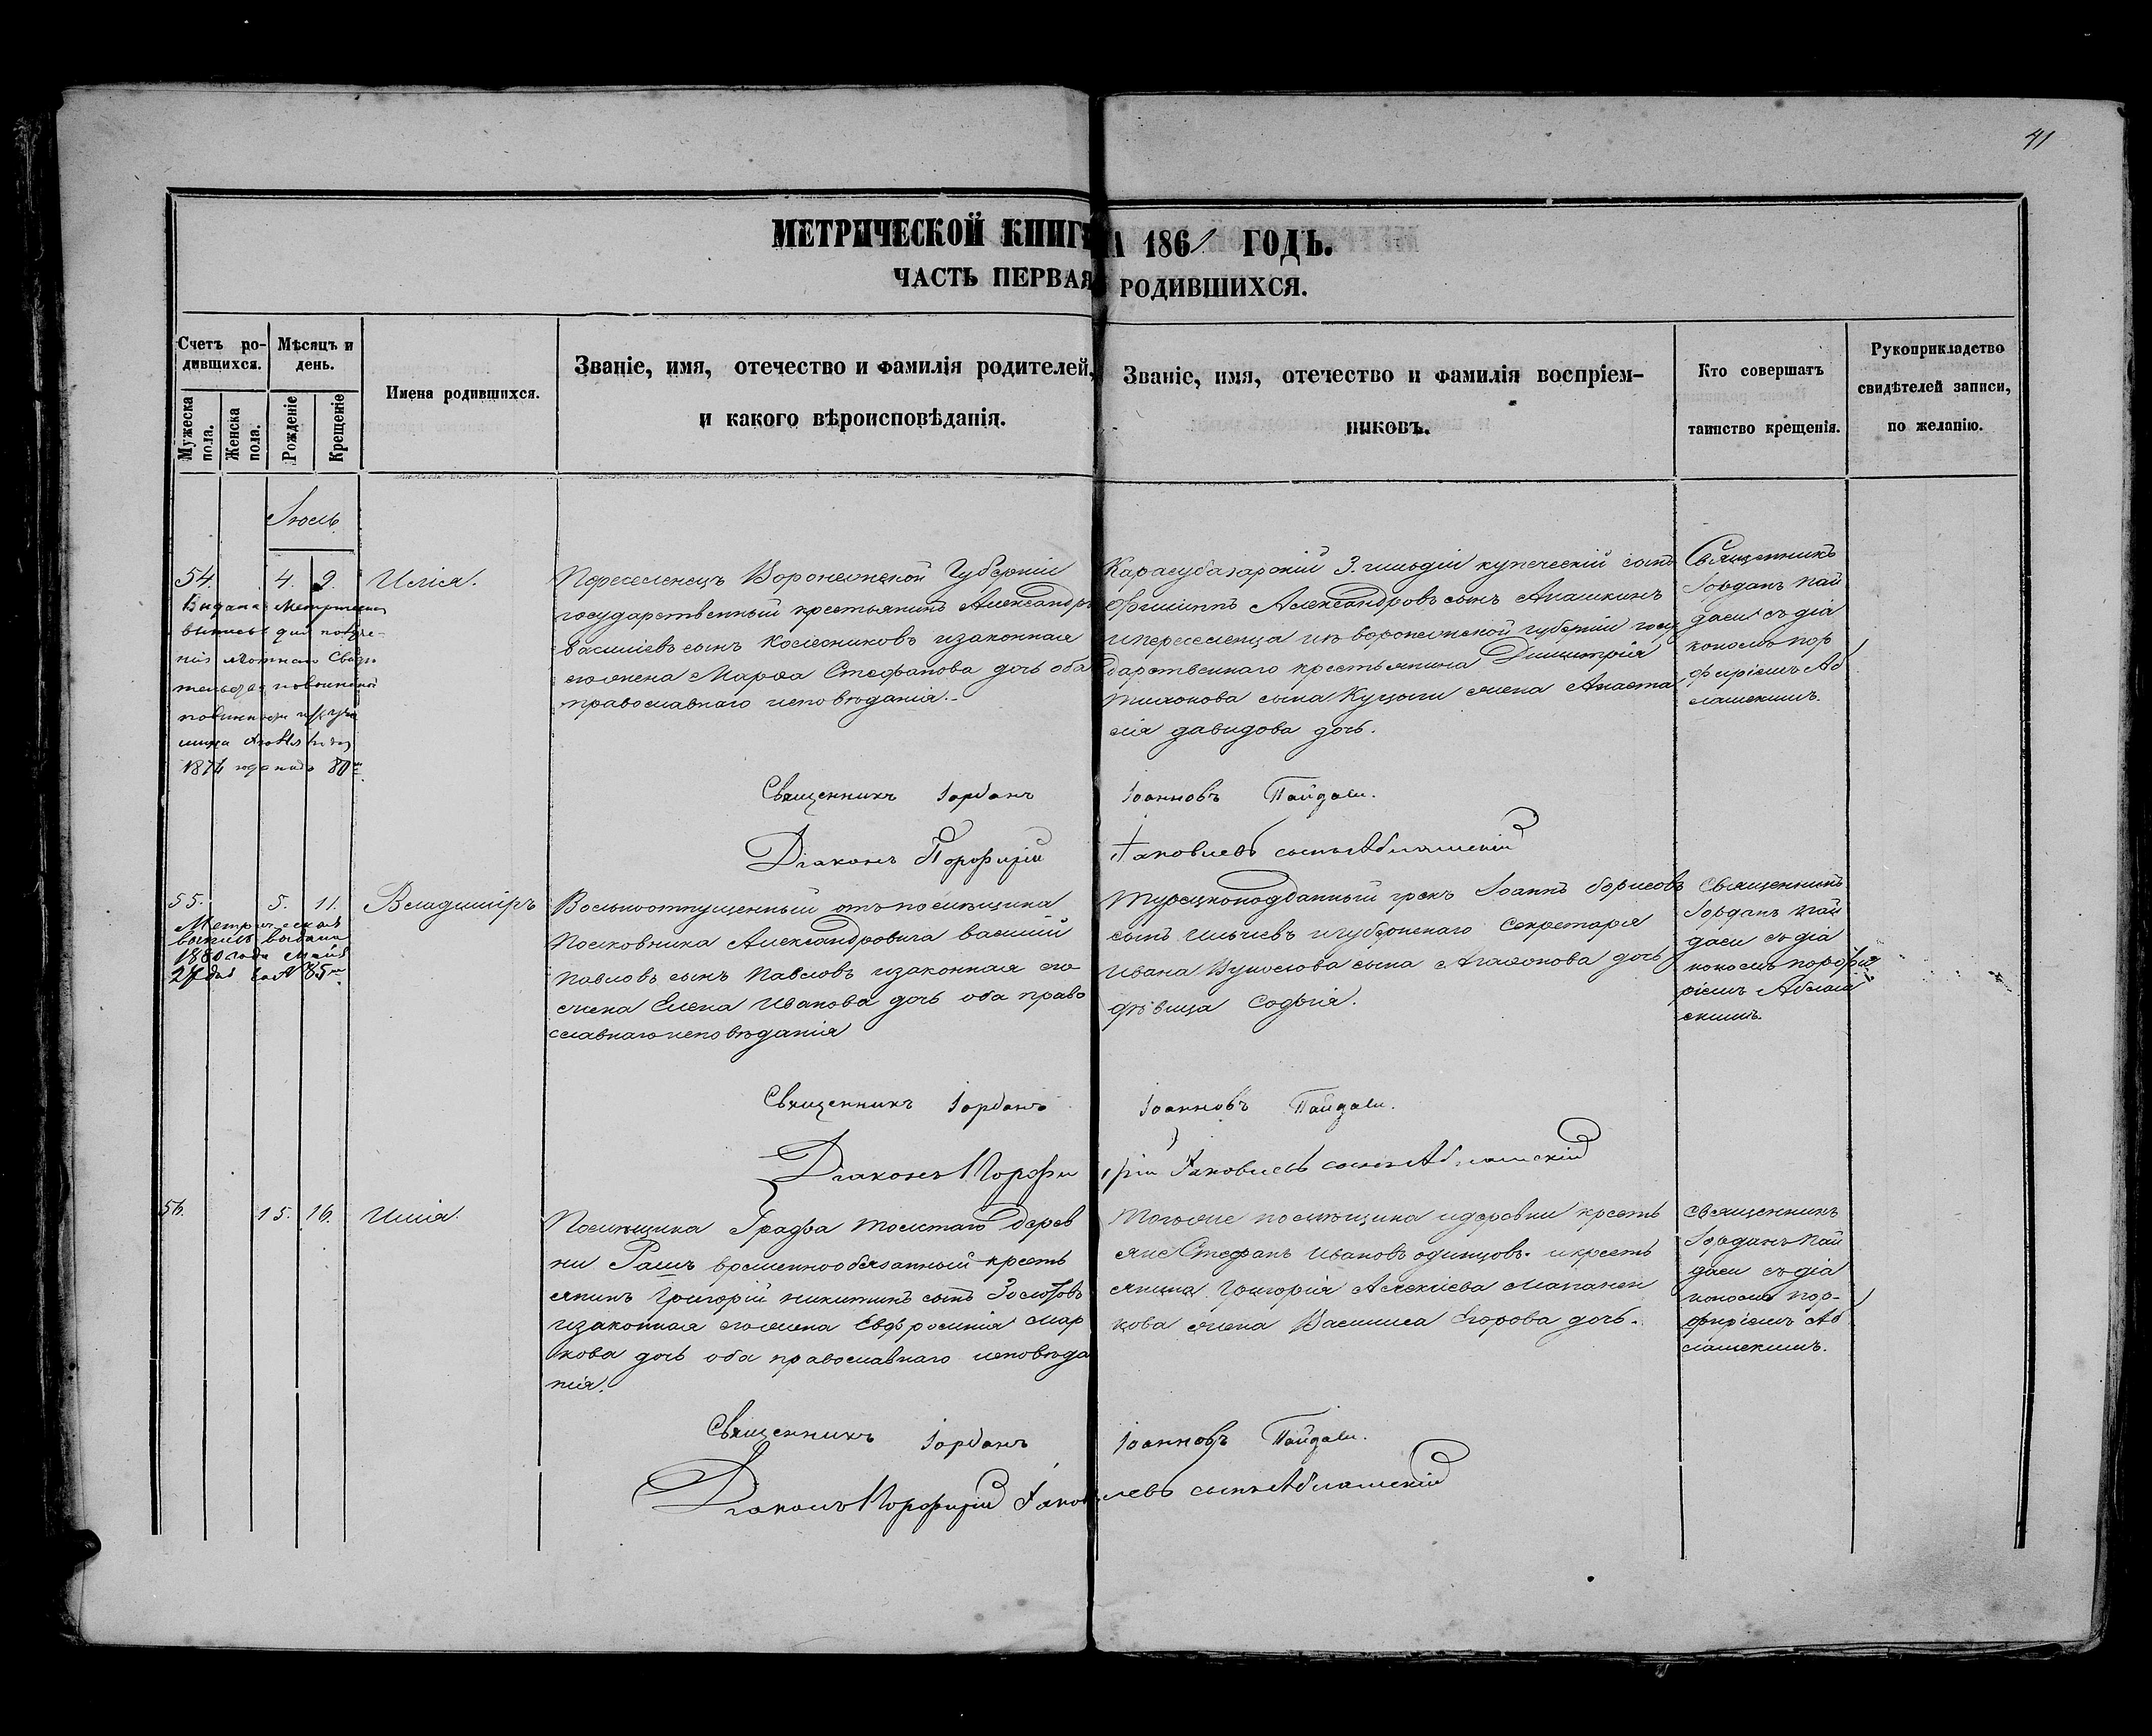 41
МЕТРИЧЕСКОЙ КНИГ А 1861 ГОДЪ.
ЧАСТЬ ПЕРВАЯ РОДИВШИХСЯ.
Счетъ ро-
дившихся.
Мужеска
пола.
Женска
пола.
Мѣсяцъ и
день.
Рожденіе
Крещеніе
Имена родившихся.
Званіе, имя, отечество и фамилія родителей,
и какого вѣроисповѣданія.
Званіе, имя, отечество и фамилія воспріем-
никовъ.
Кто совершатъ
таинство крещенія.
Рукоприкладство
свидѣтелей записи,
по желанію.
Іюль
54. 4. 9. Илія.
Выдана Метрическая
выпись для получе-
нія
1874 года 80
Переселенецъ Воронежской Губерніи
государственный крестьянинъ Александръ
васильевъ сынъ Колесниковъ и законная
его жена Марѳа Стефанова дочь оба
православнаго исповѣданія.
Карасубазарскій 3. гильдіи купеческій сынъ
Филиппъ Александровъ сынъ Анашкинъ
и переселенца изъ воронежской губерніи госу
дарственнаго крестьянина Димитрія
Тихонова сына жена Анаста
сія давидова дочь.
Священникъ
Іорданъ Пай
даси съ діа
кономъ пор
фиріемъ Аб
лашскимъ.
Священникъ Іорданъ Іоанновъ Пайдаси.
Діаконъ Порфирій Іаковлевъ сынъ Аблашскій
55. 5. 11. Владиміръ
Метрическая
выпись выдана
1880 года Мая
27 дня за № 85
Вольноотпущенный отъ помѣщика
полковника Александровича василий
Павловъ сынъ Павловъ и законная его
жена Елена Иванова дочь оба право
славнаго исповѣданія
Турецкоподданный грекъ Іоаннъ борисовъ
сынъ Ильчевъ и губернскаго Секретаря
Ивана сына Агаѳонова дочь
дѣвица Софія.
Священникъ
Іорданъ Пай
даси съ діа
кономъ порфи
ріемъ Аблаш
скимъ.
Священникъ Іорданъ Іоанновъ Пайдаси.
Діаконъ Порфирій Іаковлевъ сынъ Аблашскій
56. 15. 16. Илія.
Помѣщика Графа Толстаго Дерев
ни временнообязанный кресть
янинъ Григорій никитинъ сынъ
и законная его жена Евфросинія Мар
кова дочь оба православнаго исповѣда
нія.
Тогоже помѣщика и деревни кресть
яне Стефанъ Ивановъ одинцовъ и кресть
янина Григорія Алексіева
кова жена Василиса Егорова дочь.
священникъ
Іорданъ Пай
даси съ діа
кономъ Пор-
фиріемъ Аб
лашскимъ.
Священникъ Іорданъ Іоанновъ Пайдаси.
Діаконъ Порфирій Іаковлевъ сынъ Аблашскій